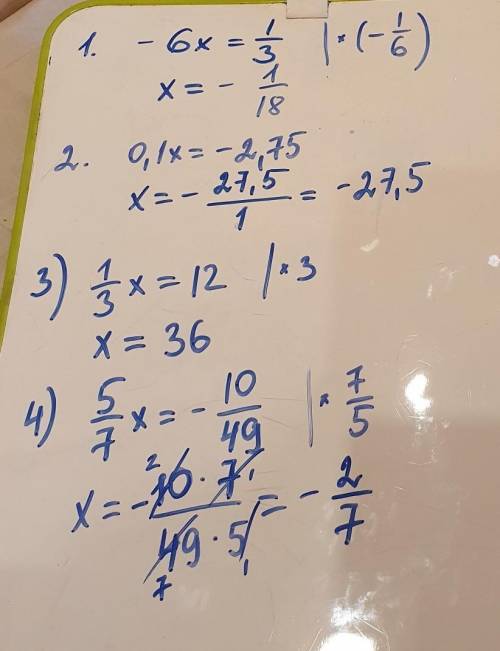 1. - 6x = 1/3 | × (- 1/6)
x = - 1/18
2. 0,1x = - 2,75
x = - 27,5/1 = - 27,5
3) 1/3 x = 12 | × 3
x = 36
4) 5/7 x = - 10/49 | × 7/5
x = - 2 10 · 7 1 / 49 7 · 5 1 = - 2/7